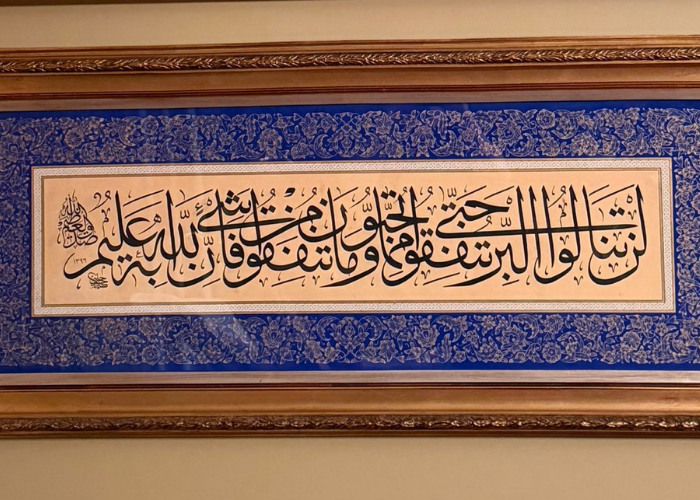 لن تنالوا البر حتى تنفقوا مما تحبون وما تنفقوا من شيء فإن الله به عليم
صدق الله العظيم
١٣٩٦